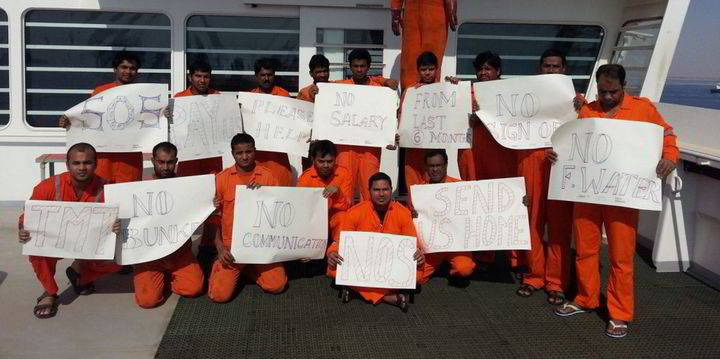 SOS
PAY U
PLEASE
HELP
NO
SALARY
FROM
LAST
6 MONTH
NO
SIGN OF
NO
F. WATER
TMT
NO
BUNKE
NO
COMMUNICATION
NOS
SEND
US HOME